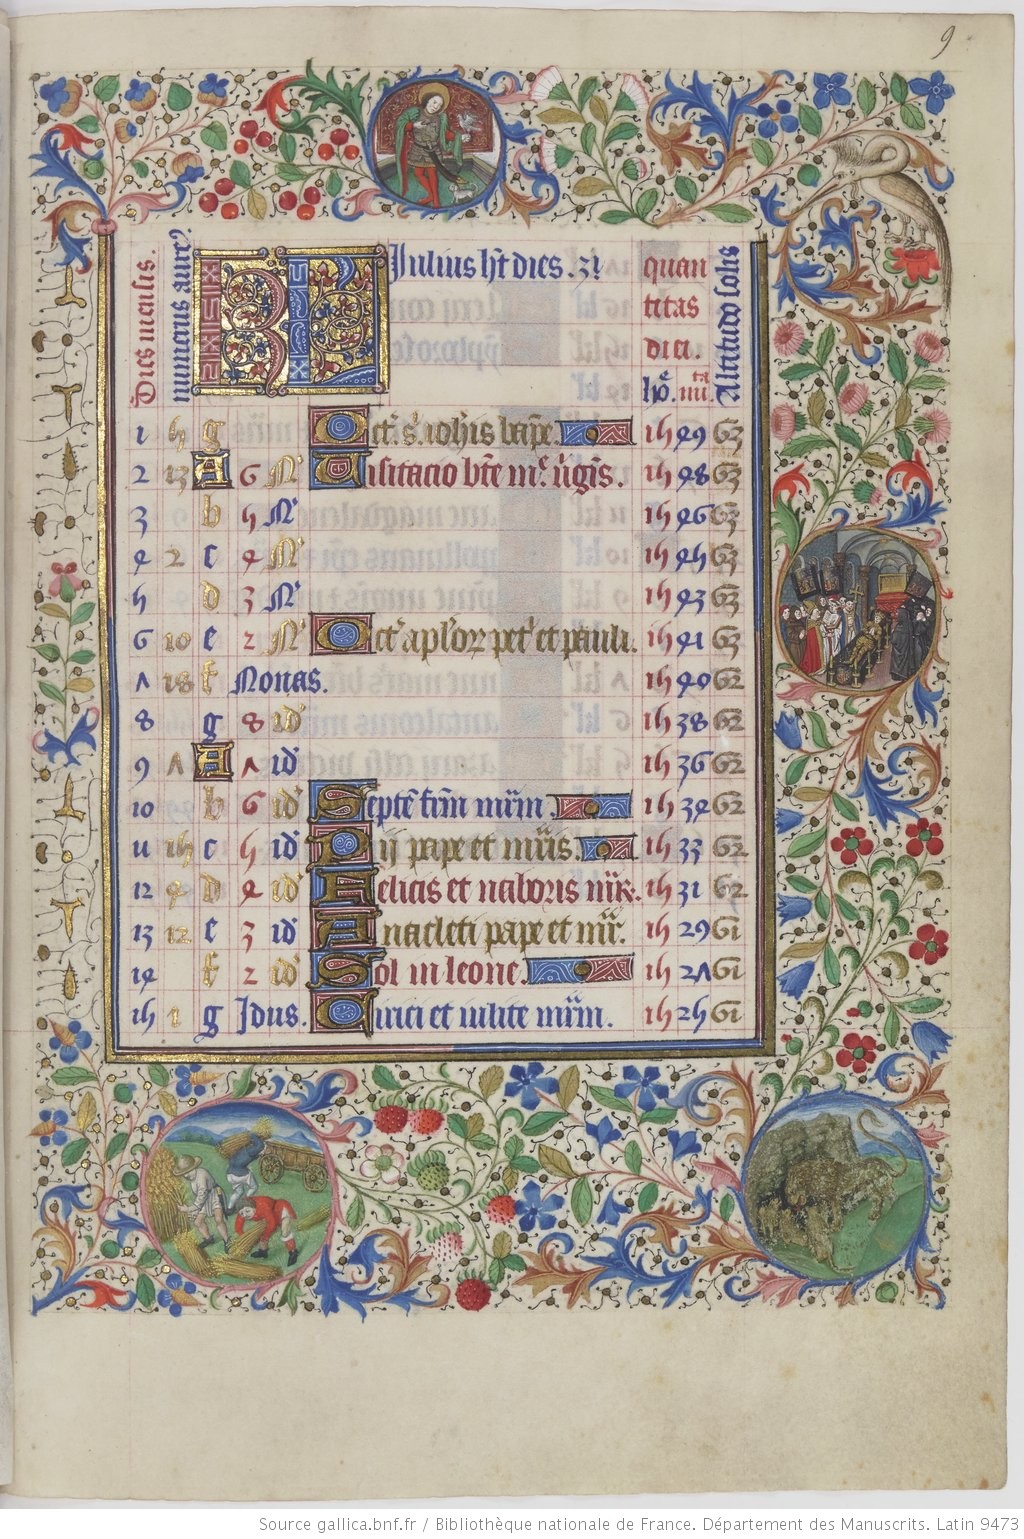 9
Dies mensis.
numerus aure9
KL
Julius ht dies .31
quan
titas
diei.
ho. mi.
Altitudo solis
1 5 g Oct. s. iohis bapt. 15 49 63
2 13 A 6 N Visitacio bte m. virgis. 15 48 63
3 b 5 N 15 46 63
4 2 c 4 N 15 45 63
5 d 3 N 15 43 63
6 10 e 2 N Oct aplor pet et pauli. 15 41 63
7 18 f Nonas. 15 40 62
8 g 8 id 15 38 62
9 7 A 7 id 15 36 62
10 b 6 id Septe frm mrm. 15 34 62
11 15 c 5 id Pij pape et mris. 15 33 62
12 4 d 4 id Felicis et naboris mr. 15 31 62
13 12 e 3 id Anacleti pape et mr. 15 29 61
14 f 2 id Sol in leone. 15 27 61
15 1 g Idus. Quirici et iulite mrm. 15 25 61
Source gallica.bnf.fr / Bibliothèque nationale de France. Département des Manuscrits. Latin 9473